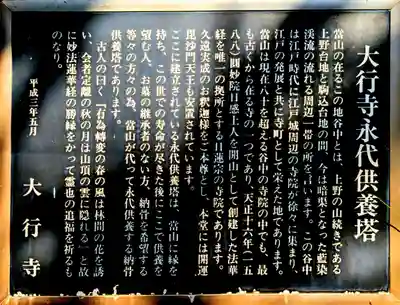 大行寺永代供養塔
当山の在るこの地谷中とは、上野の山続きである
上野台地と駒込台地の間、今は暗渠となった藍染
渓流の流れる周辺一帯の所を言います。この谷中
は江戸時代に江戸城周辺の寺院が徐々に集まり、
江戸の発展と共に寺町として栄えた地であります。
当山は現在八十を超える谷中の寺院の中でも、最
も古くから在る寺の一つであり、天正十六年(一五
八八)圓妙院日感上人を開山として創建した法華
経を唯一の拠所とする日蓮宗の寺院であります。
久遠実成のお釈迦様をご本尊とし、本堂には開運
毘沙門天王も安置されています。
ここに建立されている永代供養塔は、当山に縁を
持ち、この世での寿命が尽きた後にここで供養を
望む人、お墓の継承者のない方、納骨を希望する
等々の方々の為、当山が代って永代供養する納骨
供養塔であります。
古人の曰く『有為転変の春の風は林間の花を誘
い、会者定離の秋の月は山頂の雲に隠れる』と故
に妙法蓮華経の勝縁をかって霊也の追福を祈るも
のなり。
平成三年五月
大行寺